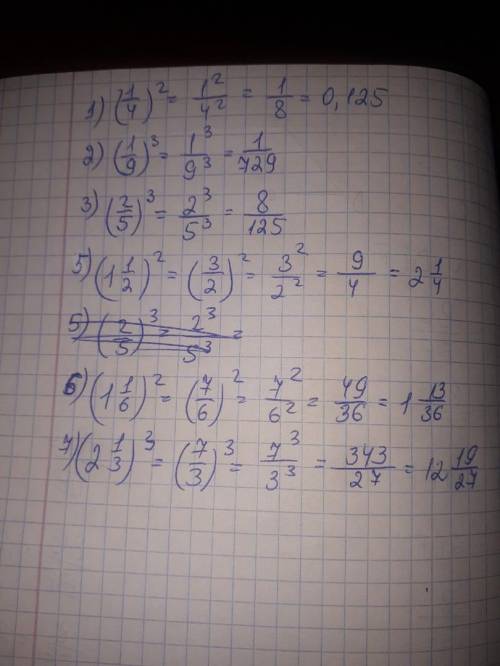 1) (1/4)² = 1²/4² = 1/8 = 0,125
2) (1/9)³ = 1³/9³ = 1/729
3) (2/5)³ = 2³/5³ = 8/125
5) (1 1/2)² = (3/2)² = 3²/2² = 9/4 = 2 1/4
5) (2/5)³ = 2³/5³ =
6) (1 1/6)² = (7/6)² = 7²/6² = 49/36 = 1 13/36
7) (2 1/3)³ = (7/3)³ = 7³/3³ = 343/27 = 12 19/27